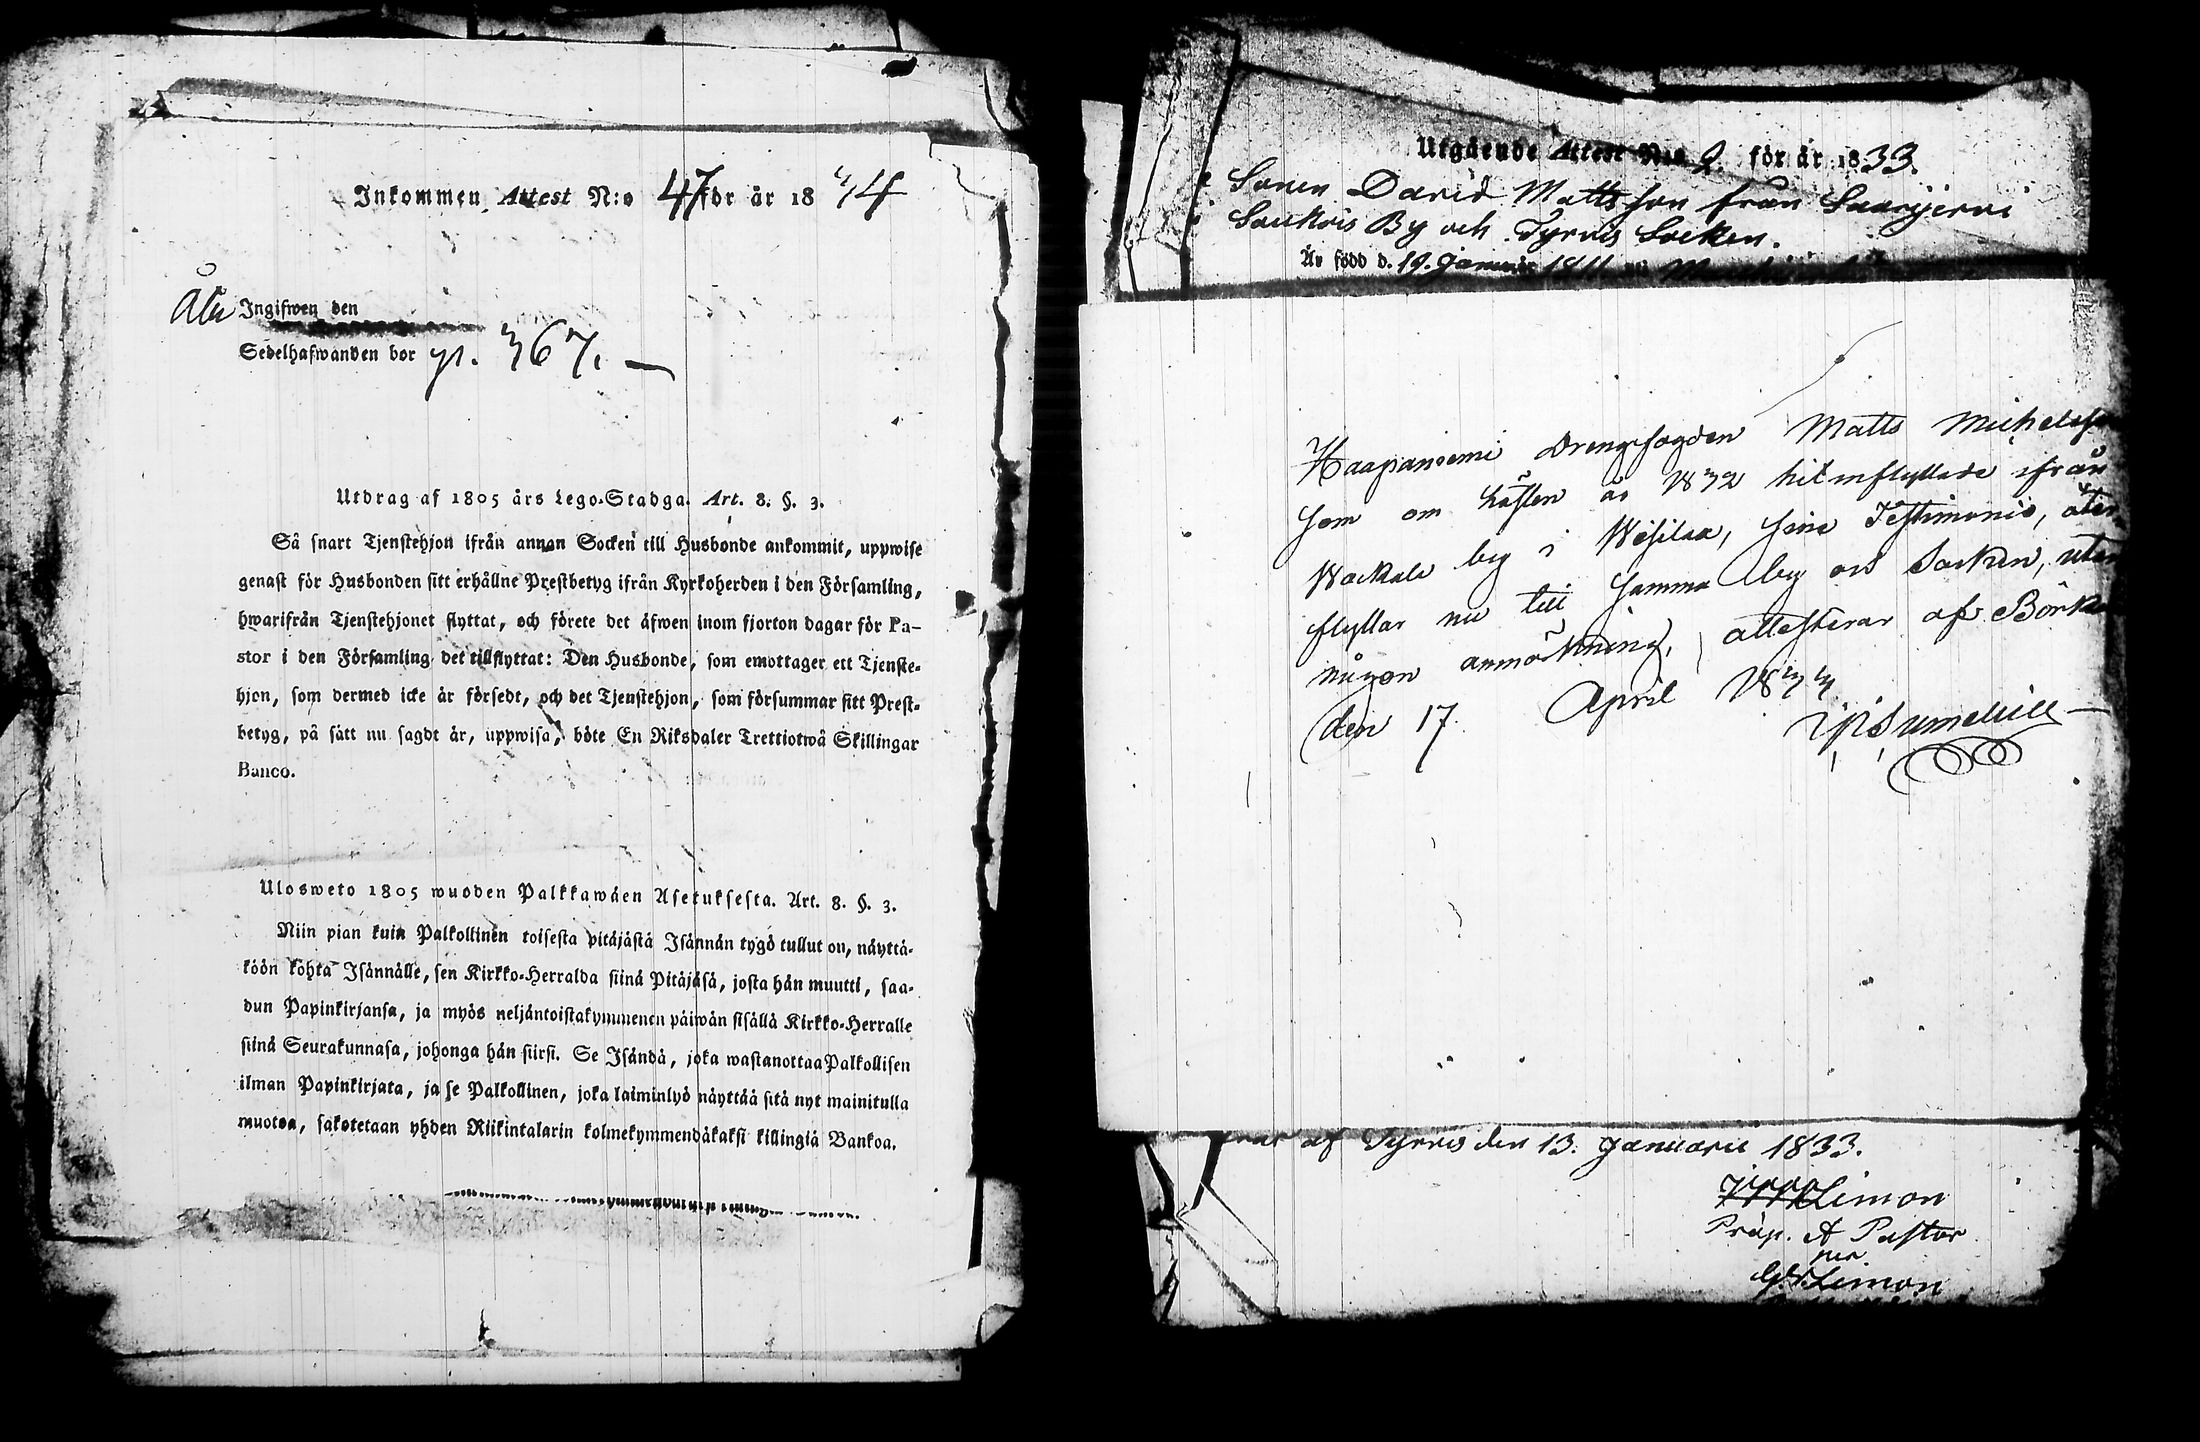 Inkommen Attest N:o 47 för år 1834
Åbo Ingifwen den
Sedelhafwanden bor p. 367.
Utdrag af 1805 års Lego-Stadga. Art. 8. §. 3.
Så snart Tjenstehjon ifrån annan Socken till Husbonde ankommit, uppwise
genast för Husbonden sitt erhållne Prestbetyg ifrån Kyrkoherden i den Församling,
hwarifrån Tjenstehjonet flyttat, och förete det äfwen inom fjorton dagar för Pa-
stor i den Församling det tillflyttat: Den Husbonde, som emottager ett Tjenste-
hjon, som dermed icke är försedt, och det Tjenstehjon, som försummar sitt Prest-
betyg, på sätt nu sagdt är, uppwisa, böte En Riksdaler Trettiotwå Skillingar
Banco.
Ulosweto 1805 wuoden Palkkawäen Asetuksesta. Art. 8. §. 3.
Niin pian kuin Palkollinen toisesta pitäjästä Isännän tygö tullut on, näyttä-
köön kohta Isännälle, sen Kirkko-Herralda siinä Pitäjäsä, josta hän muutti, saa-
dun Papinkirjansa, ja myös neljäntoistakymmenen päiwän sisällä Kirkko-Herralle
siinä Seurakunnasa, johonga hän siirsi. Se Isändä, joka wastanottaa Palkollisen
ilman Papinkirjata, ja se Palkollinen, joka laiminlyö näyttää sitä nyt mainitulla
muotoa, sakotetaan yhden Riikintalarin kolmekymmendäkaksi killingiä Bankoa.
Utgående Attest N:o 2. för år 1833.
Sonen David Mattsson från Saarijervi
Soukois By och Tyrvis Socken.
Är född d. 19. Januarii 1811
Haapaniemi Drengfogden Matts Michelsson
som om hösten år 1832 hit inflyttade ifrån
Wackala by i Wesilax, sine Testimonio, åter
flyttar nu till samma by och Socken, utan
någon anmärkning, attesterar af Birkala
den 17. April 1834
af Tyrvis den 13. Januarii 1833.
Limon
Præp. & Pastor
per
G. Limon